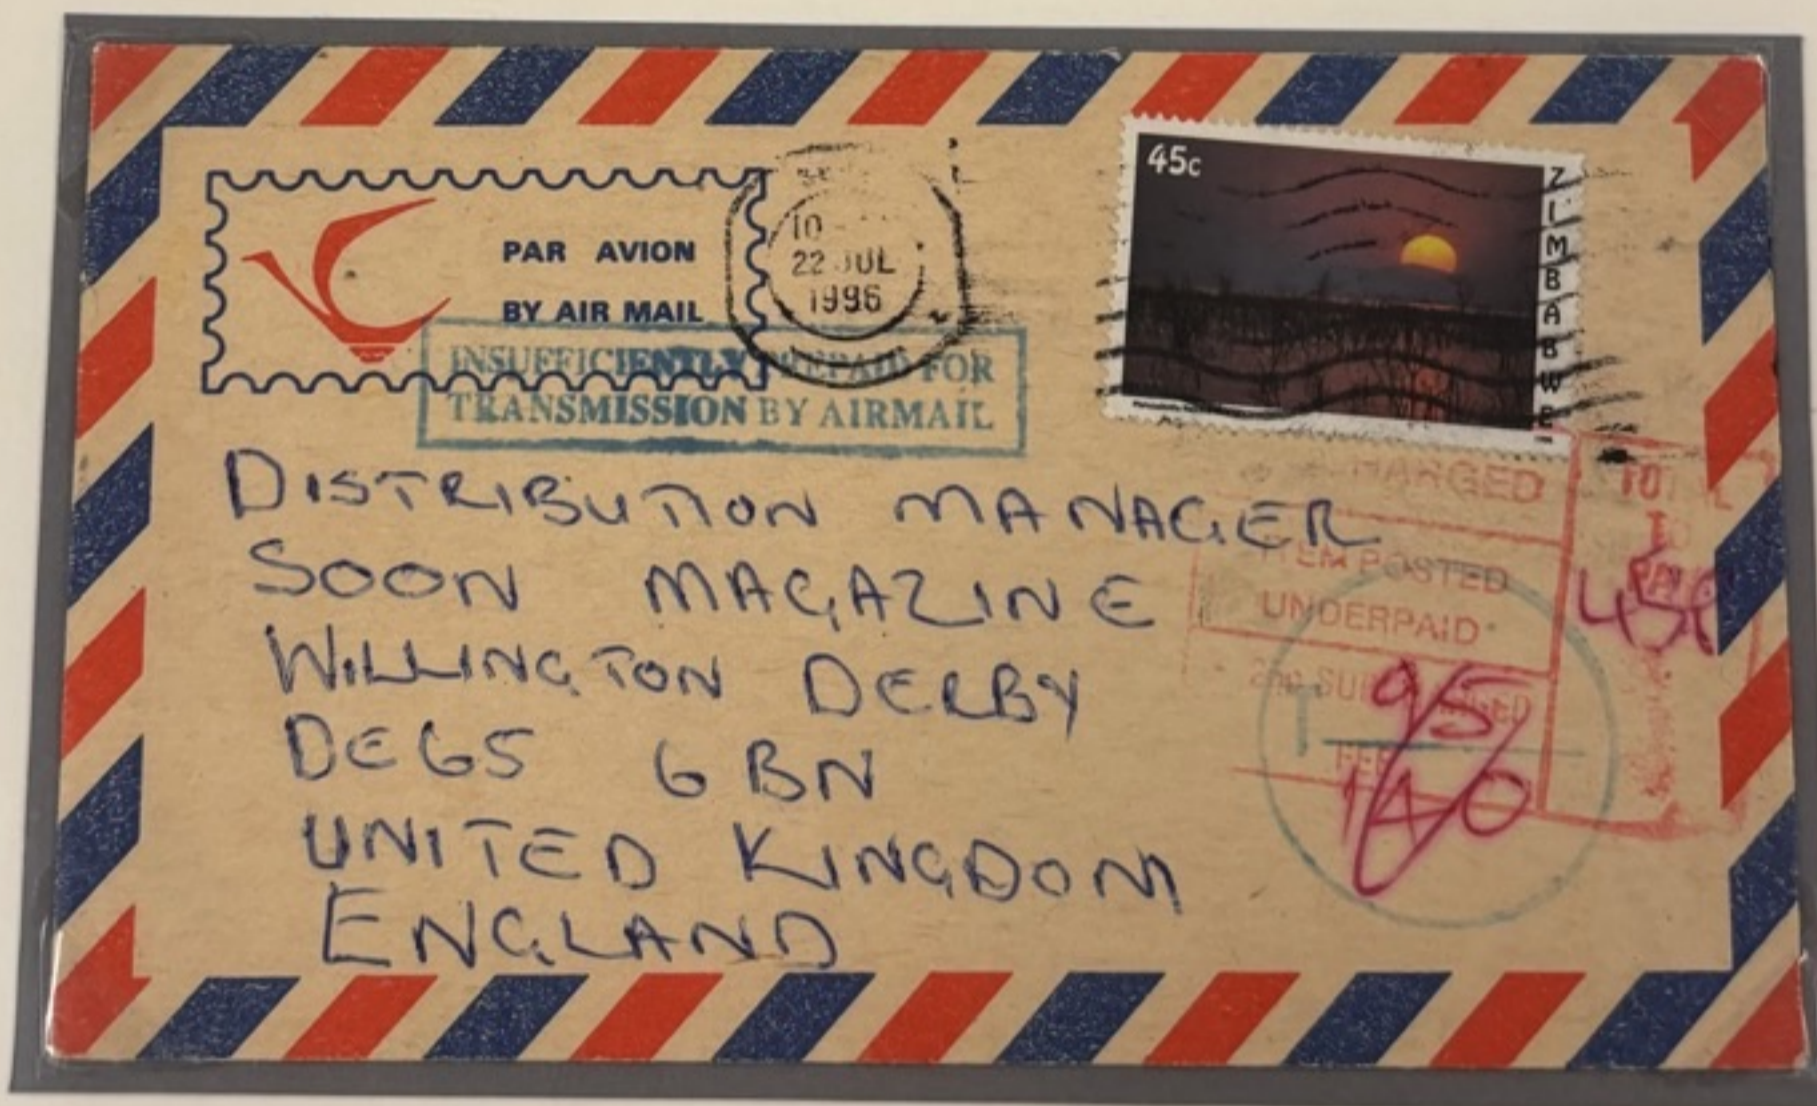 45c
ZIMBABWE
PAR AVION
BY AIR MAIL
10
22 JUL
1996
INSUFFICIENTLY PREPAID FOR
TRANSMISSION BY AIRMAIL
DISTRIBUTION MANAGER
SOON MAGAZINE
WILLINGTON DERBY
DE65 6BN
UNITED KINGDOM
ENGLAND
CHARGED
ITEM POSTED
UNDERPAID
TOTAL
TO
PAY
T
95
140